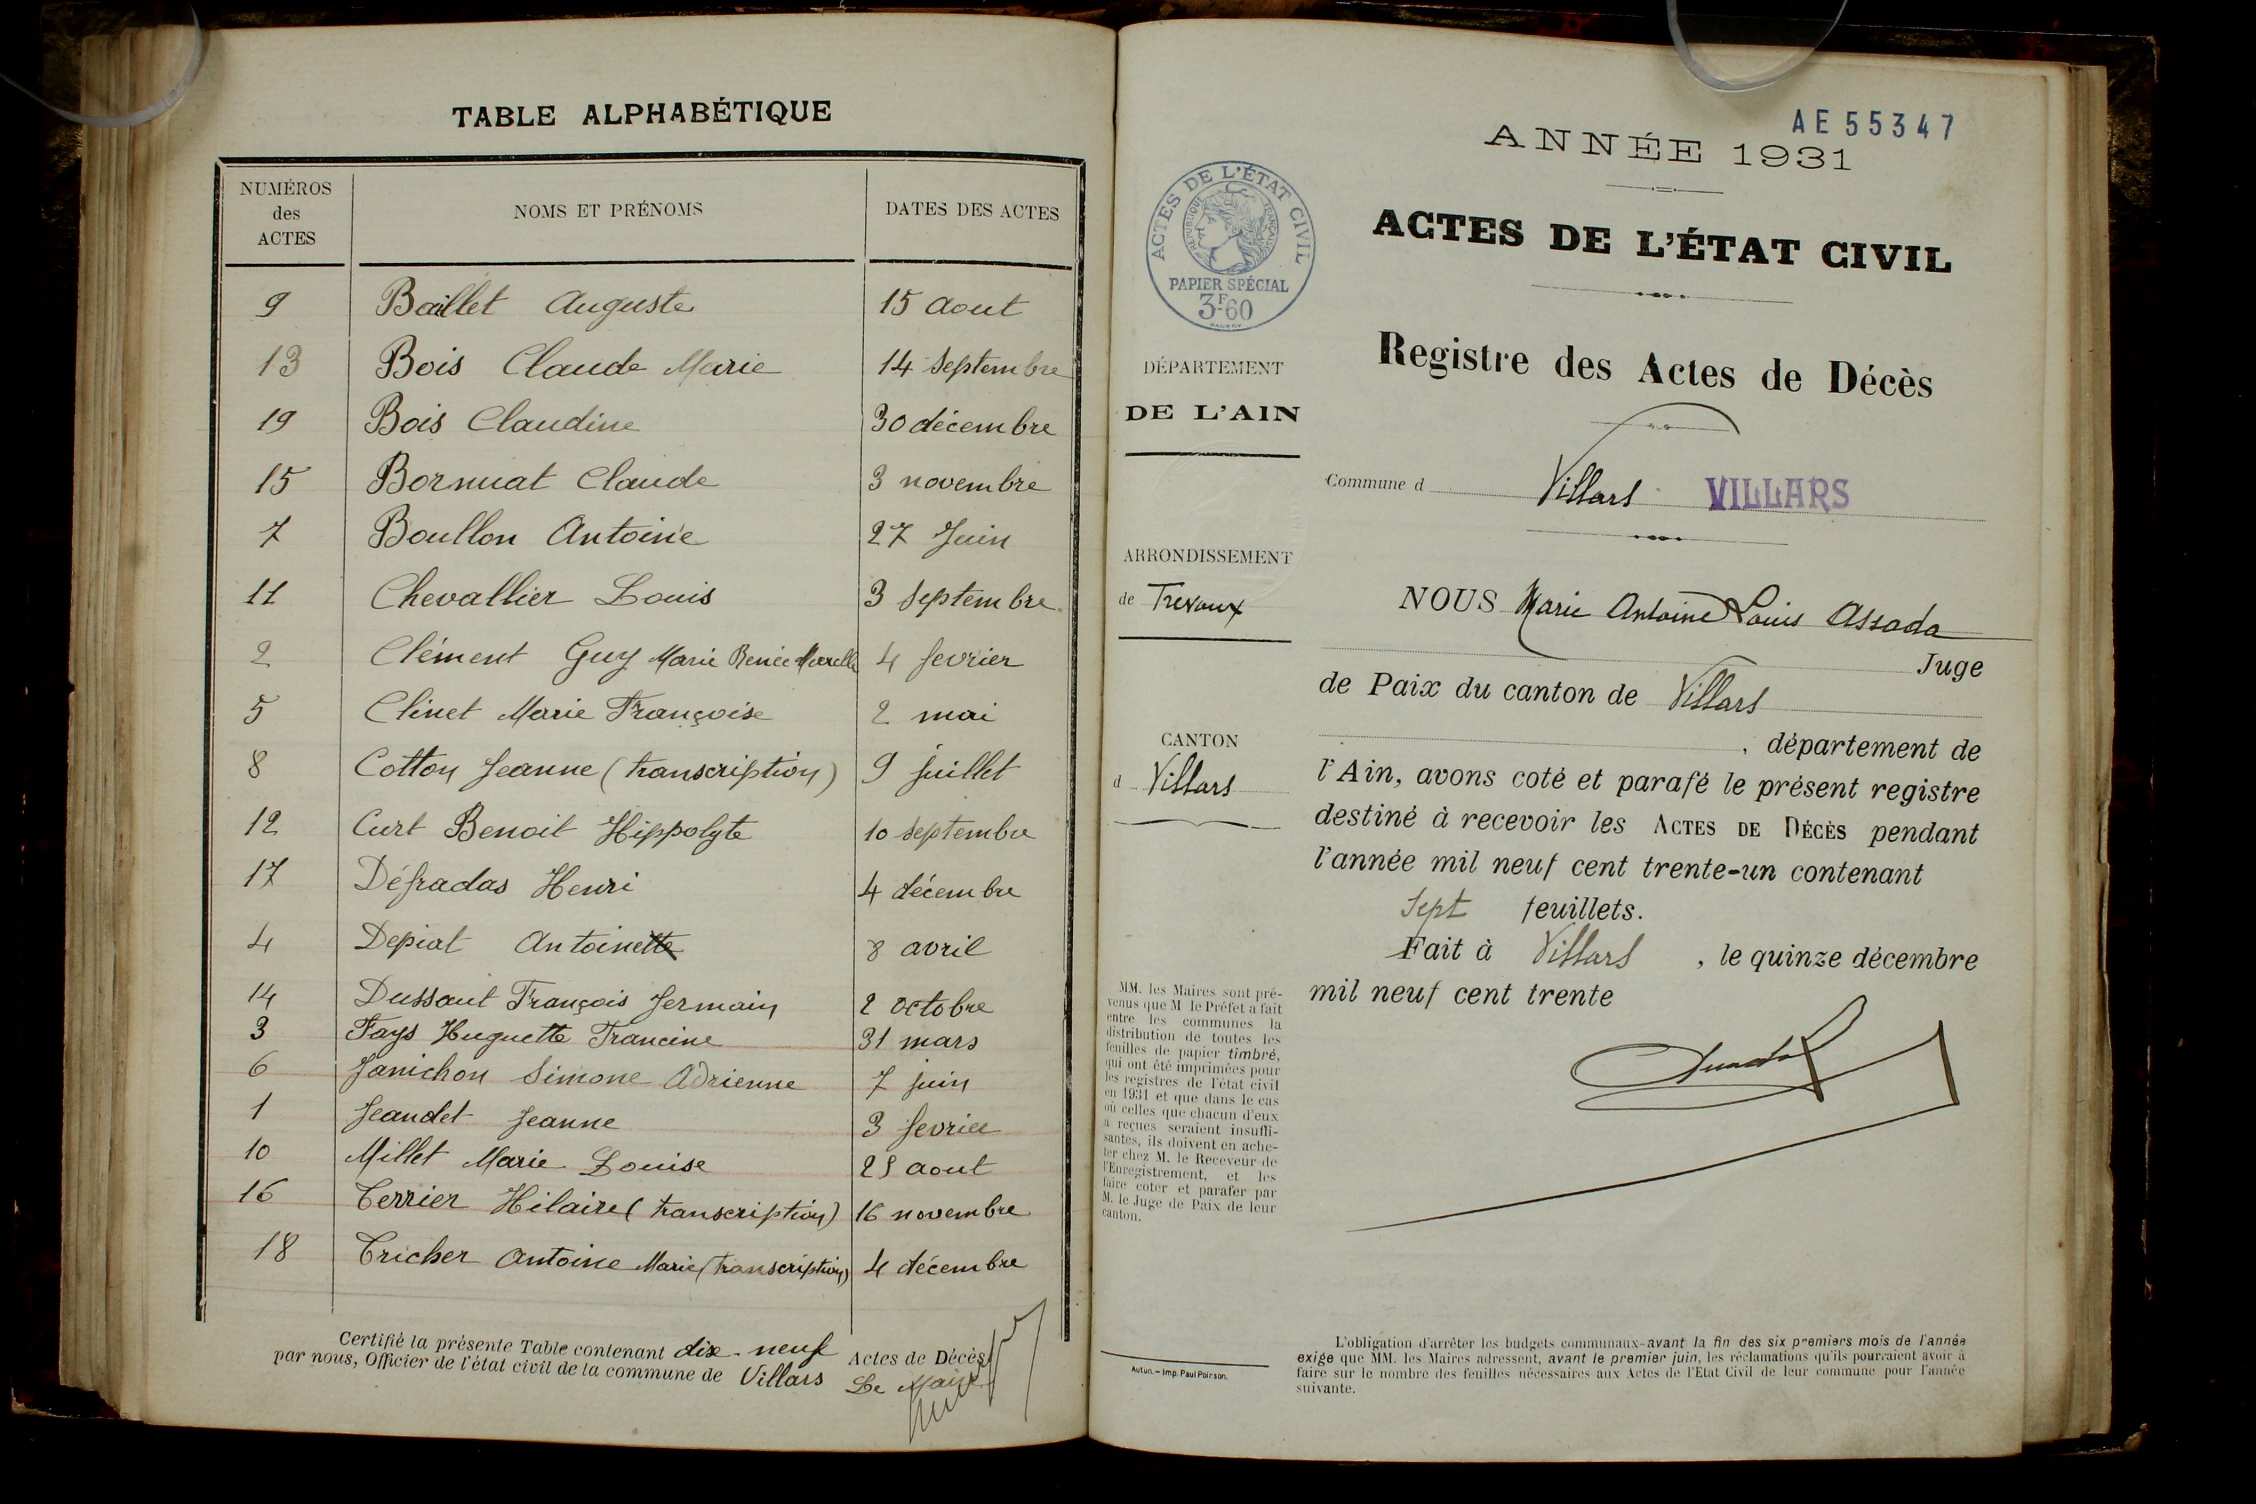 TABLE ALPHABÉTIQUE
NUMÉROS des ACTES NOMS ET PRÉNOMS DATES DES ACTES
9 Baillet Auguste 15 aout
13 Bois Claude Marie 14 Septembre
19 Bois Claudine 30 décembre
15 Bornuat Claude 3 novembre
7 Boullon Antoine 27 Juin
11 Chevallier Louis 3 Septembre
2 Clément Guy Marie Renée Marcelle 4 fevrier
5 Clinet Marie Françoise 2 mai
8 Cotton Jeanne (transcription) 9 juillet
12 Curt Benoit Hippolyte 10 septembre
17 Défradas Henri 4 décembre
4 Depiat Antoinette 8 avril
14 Dussaut François Germain 2 octobre
3 Fays Huguette Francine 31 mars
6 Janichon Simone Adrienne 7 juin
1 Jeandet Jeanne 3 fevrier
10 Millet Marie Louise 25 aout
16 Terrier Hilaire (transcription) 16 novembre
18 Tricher Antoine Marie (transcription) 4 décembre
Certifié la présente Table contenant dix-neuf Actes de Décès
par nous, Officier de l'état civil de la commune de Villars Le Maire
AE55347
ANNÉE 1931
ACTES DE L'ÉTAT CIVIL
RÉPUBLIQUE FRANÇAISE
PAPIER SPÉCIAL
3F60
ACTES DE L'ÉTAT CIVIL
Registre des Actes de Décès
DÉPARTEMENT
DE L'AIN
Commune d Villars VILLARS
ARRONDISSEMENT
de Trevoux
CANTON
d Villars
NOUS Marie Antoine Louis Assada
Juge
de Paix du canton de Villars
, département de
l'Ain, avons coté et parafé le présent registre
destiné à recevoir les ACTES DE DÉCÈS pendant
l'année mil neuf cent trente-un contenant
Sept feuillets.
Fait à Villars , le quinze décembre
mil neuf cent trente
MM. les Maires sont pré-
venus que M le Préfet a fait
entre les communes la
distribution de toutes les
feuilles de papier timbré,
qui ont été imprimées pour
les registres de l'état civil
en 1931 et que dans le cas
où celles que chacun d'eux
a reçues seraient insuffi-
santes, ils doivent en ache-
ter chez M. le Receveur de
l'Enregistrement, et les
faire coter et parafer par
M. le Juge de Paix de leur
canton.
Autun. – Imp. Paul Poirson.
L'obligation d'arrêter les budgets communaux avant la fin des six premiers mois de l'année
exige que MM. les Maires adressent, avant le premier juin, les réclamations qu'ils pourraient avoir à
faire sur le nombre des feuilles nécessaires aux Actes de l'Etat Civil de leur commune pour l'année
suivante.